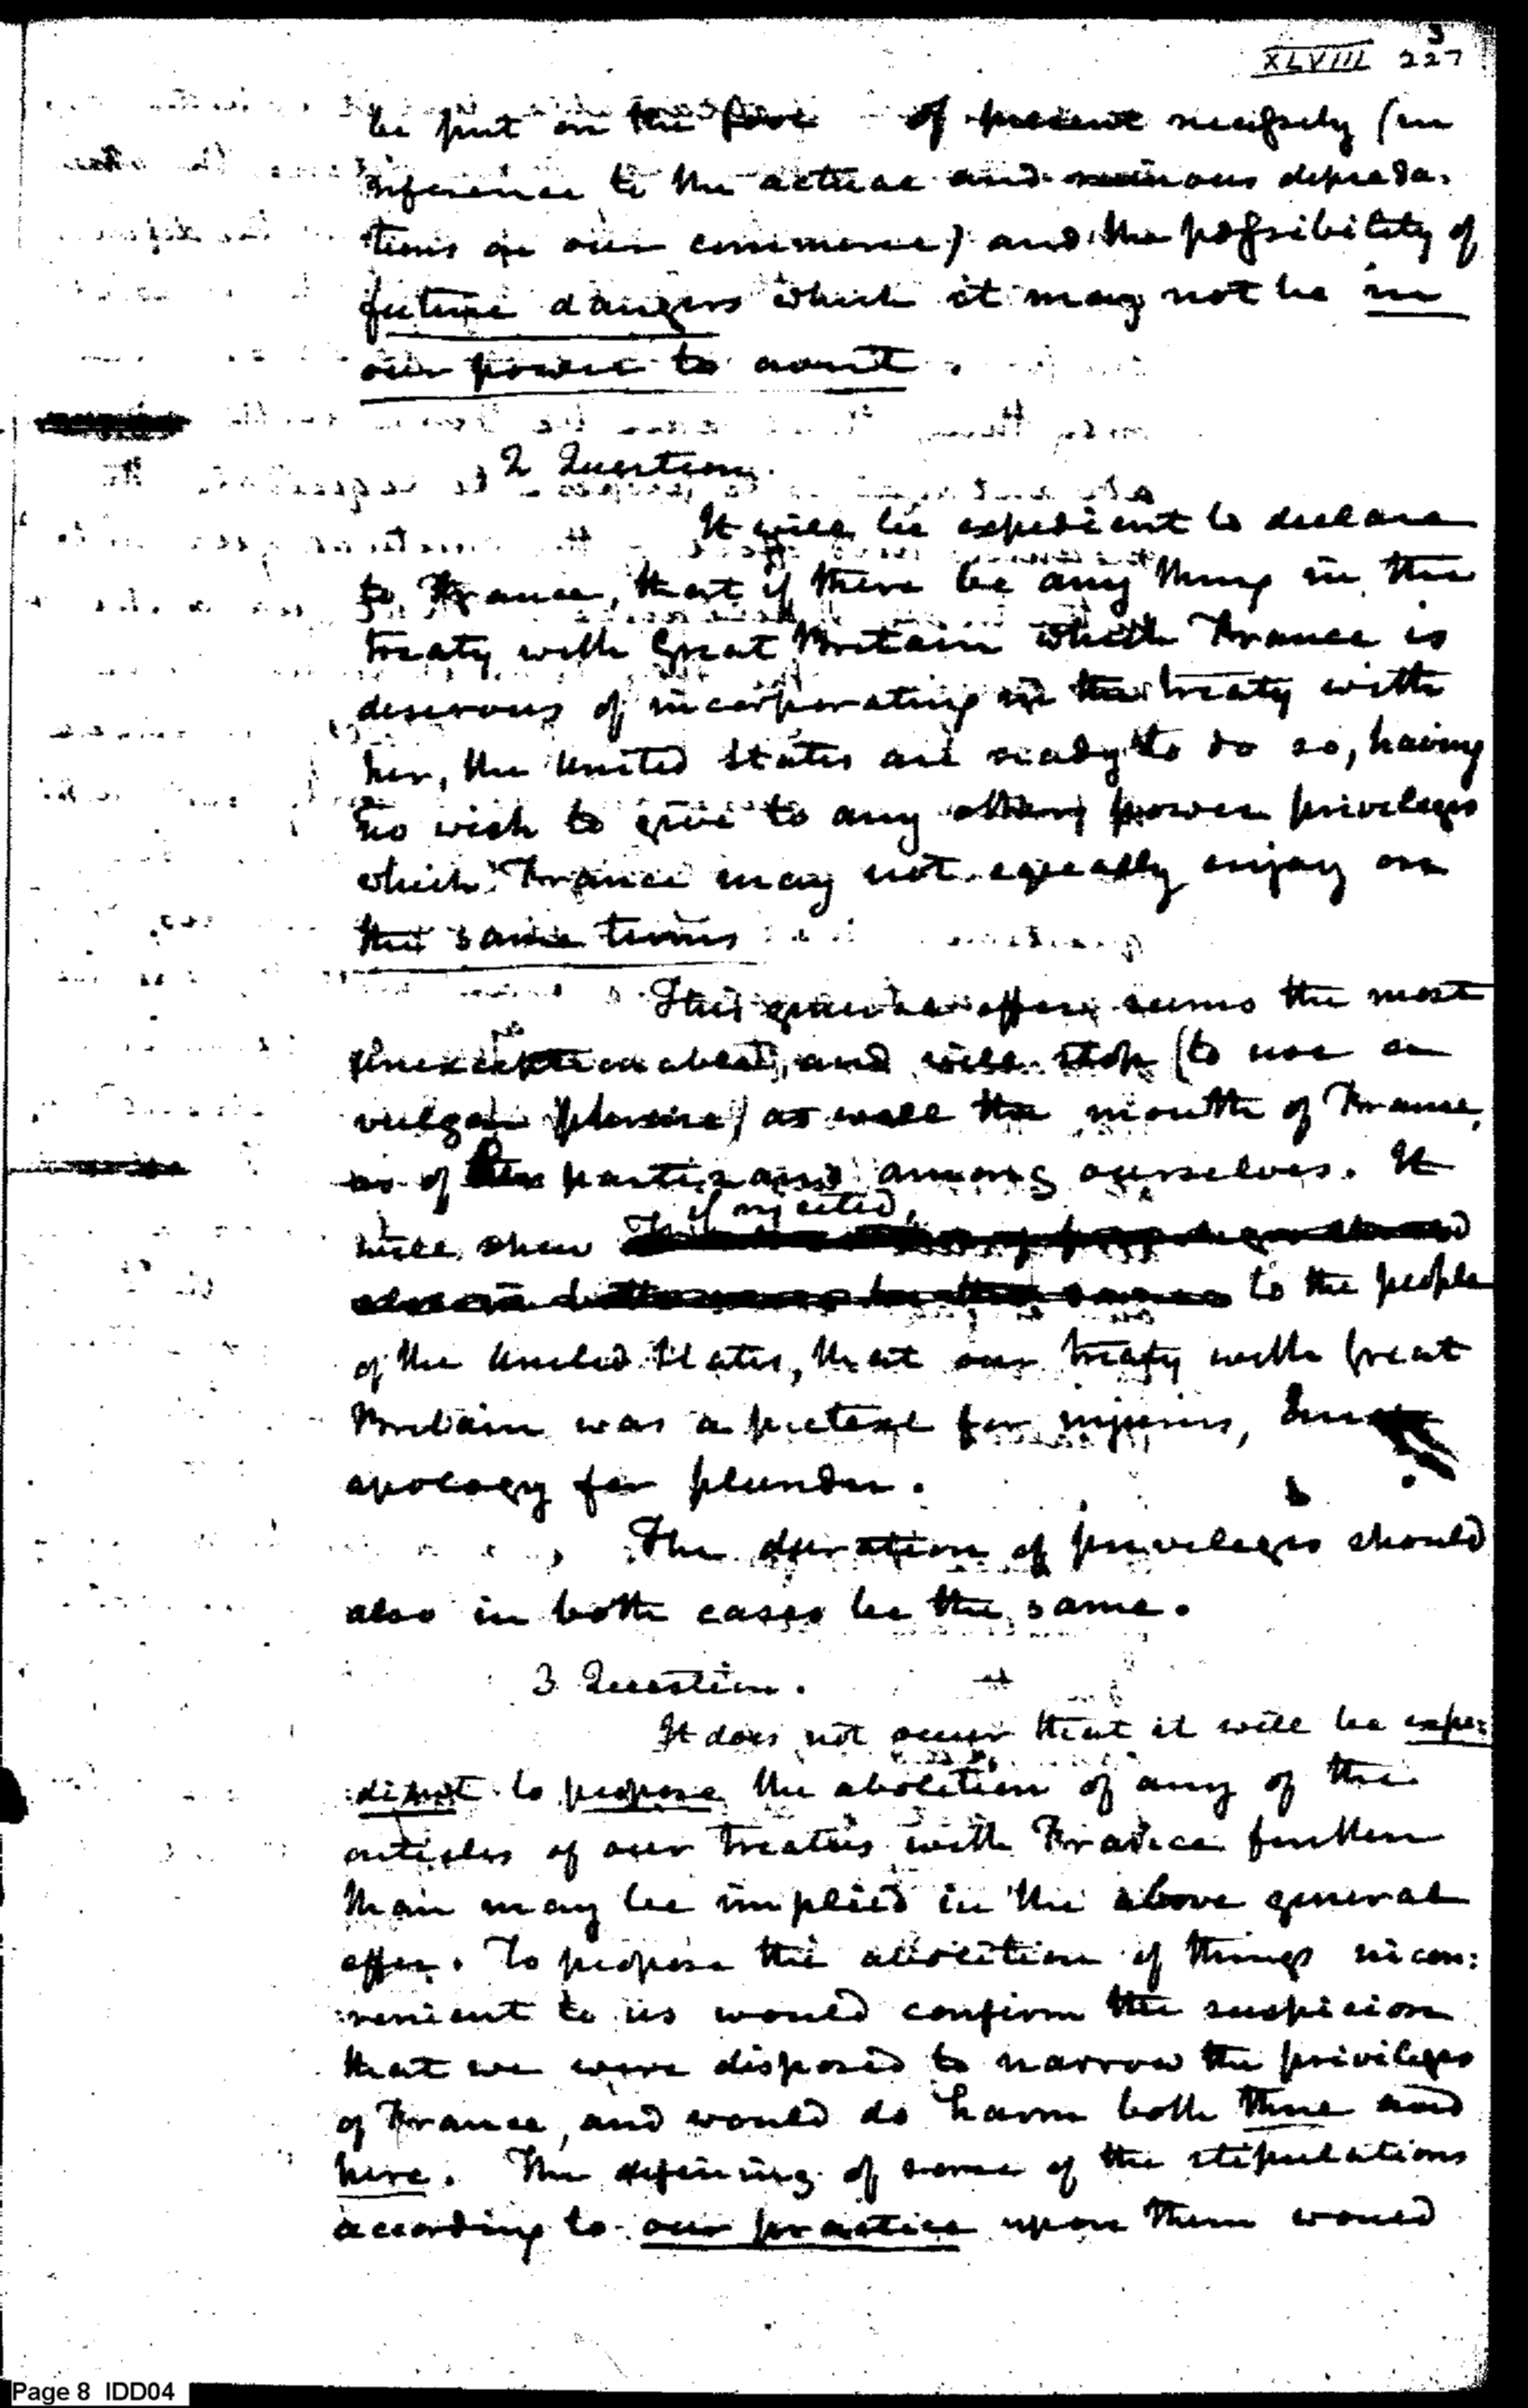 3
XLVIII 227
be put on the of present necessity (in
reference to the actual and ruinous depreda-
tions on our commerce) and the possibility of
future dangers which it may not be in
our power to avert.
2 Question.
It will be expedient to declare
to France, that if there be any thing in the
treaty with Great Britain which France is
desirous of incorporating in the treaty with
her, the United States are ready to do so, having
no wish to give to any other power privileges
which France may not equally enjoy on
the same terms
This general offer seems the most
unexceptionable; and will stop (to use a
vulgar phrase) as well the mouth of France,
as of her partizans among ourselves. It
if rejected,
will shew to the people
of the United States, that our treaty with Great
Britain was a pretext for injuries,
apology for plunder.
The duration of privileges should
also in both cases be the same.
3 Question.
It does not occur that it will be expe:
:dient to propose the abolition of any of the
articles of our treaties with France further
than may be implied in the above general
offer. To propose the abolition of things incon:
:venient to us would confirm the suspicion
that we were disposed to narrow the privileges
of France, and would do harm both there and
here. The defining of some of the stipulations
according to our practice upon them would
Page 8 IDD04